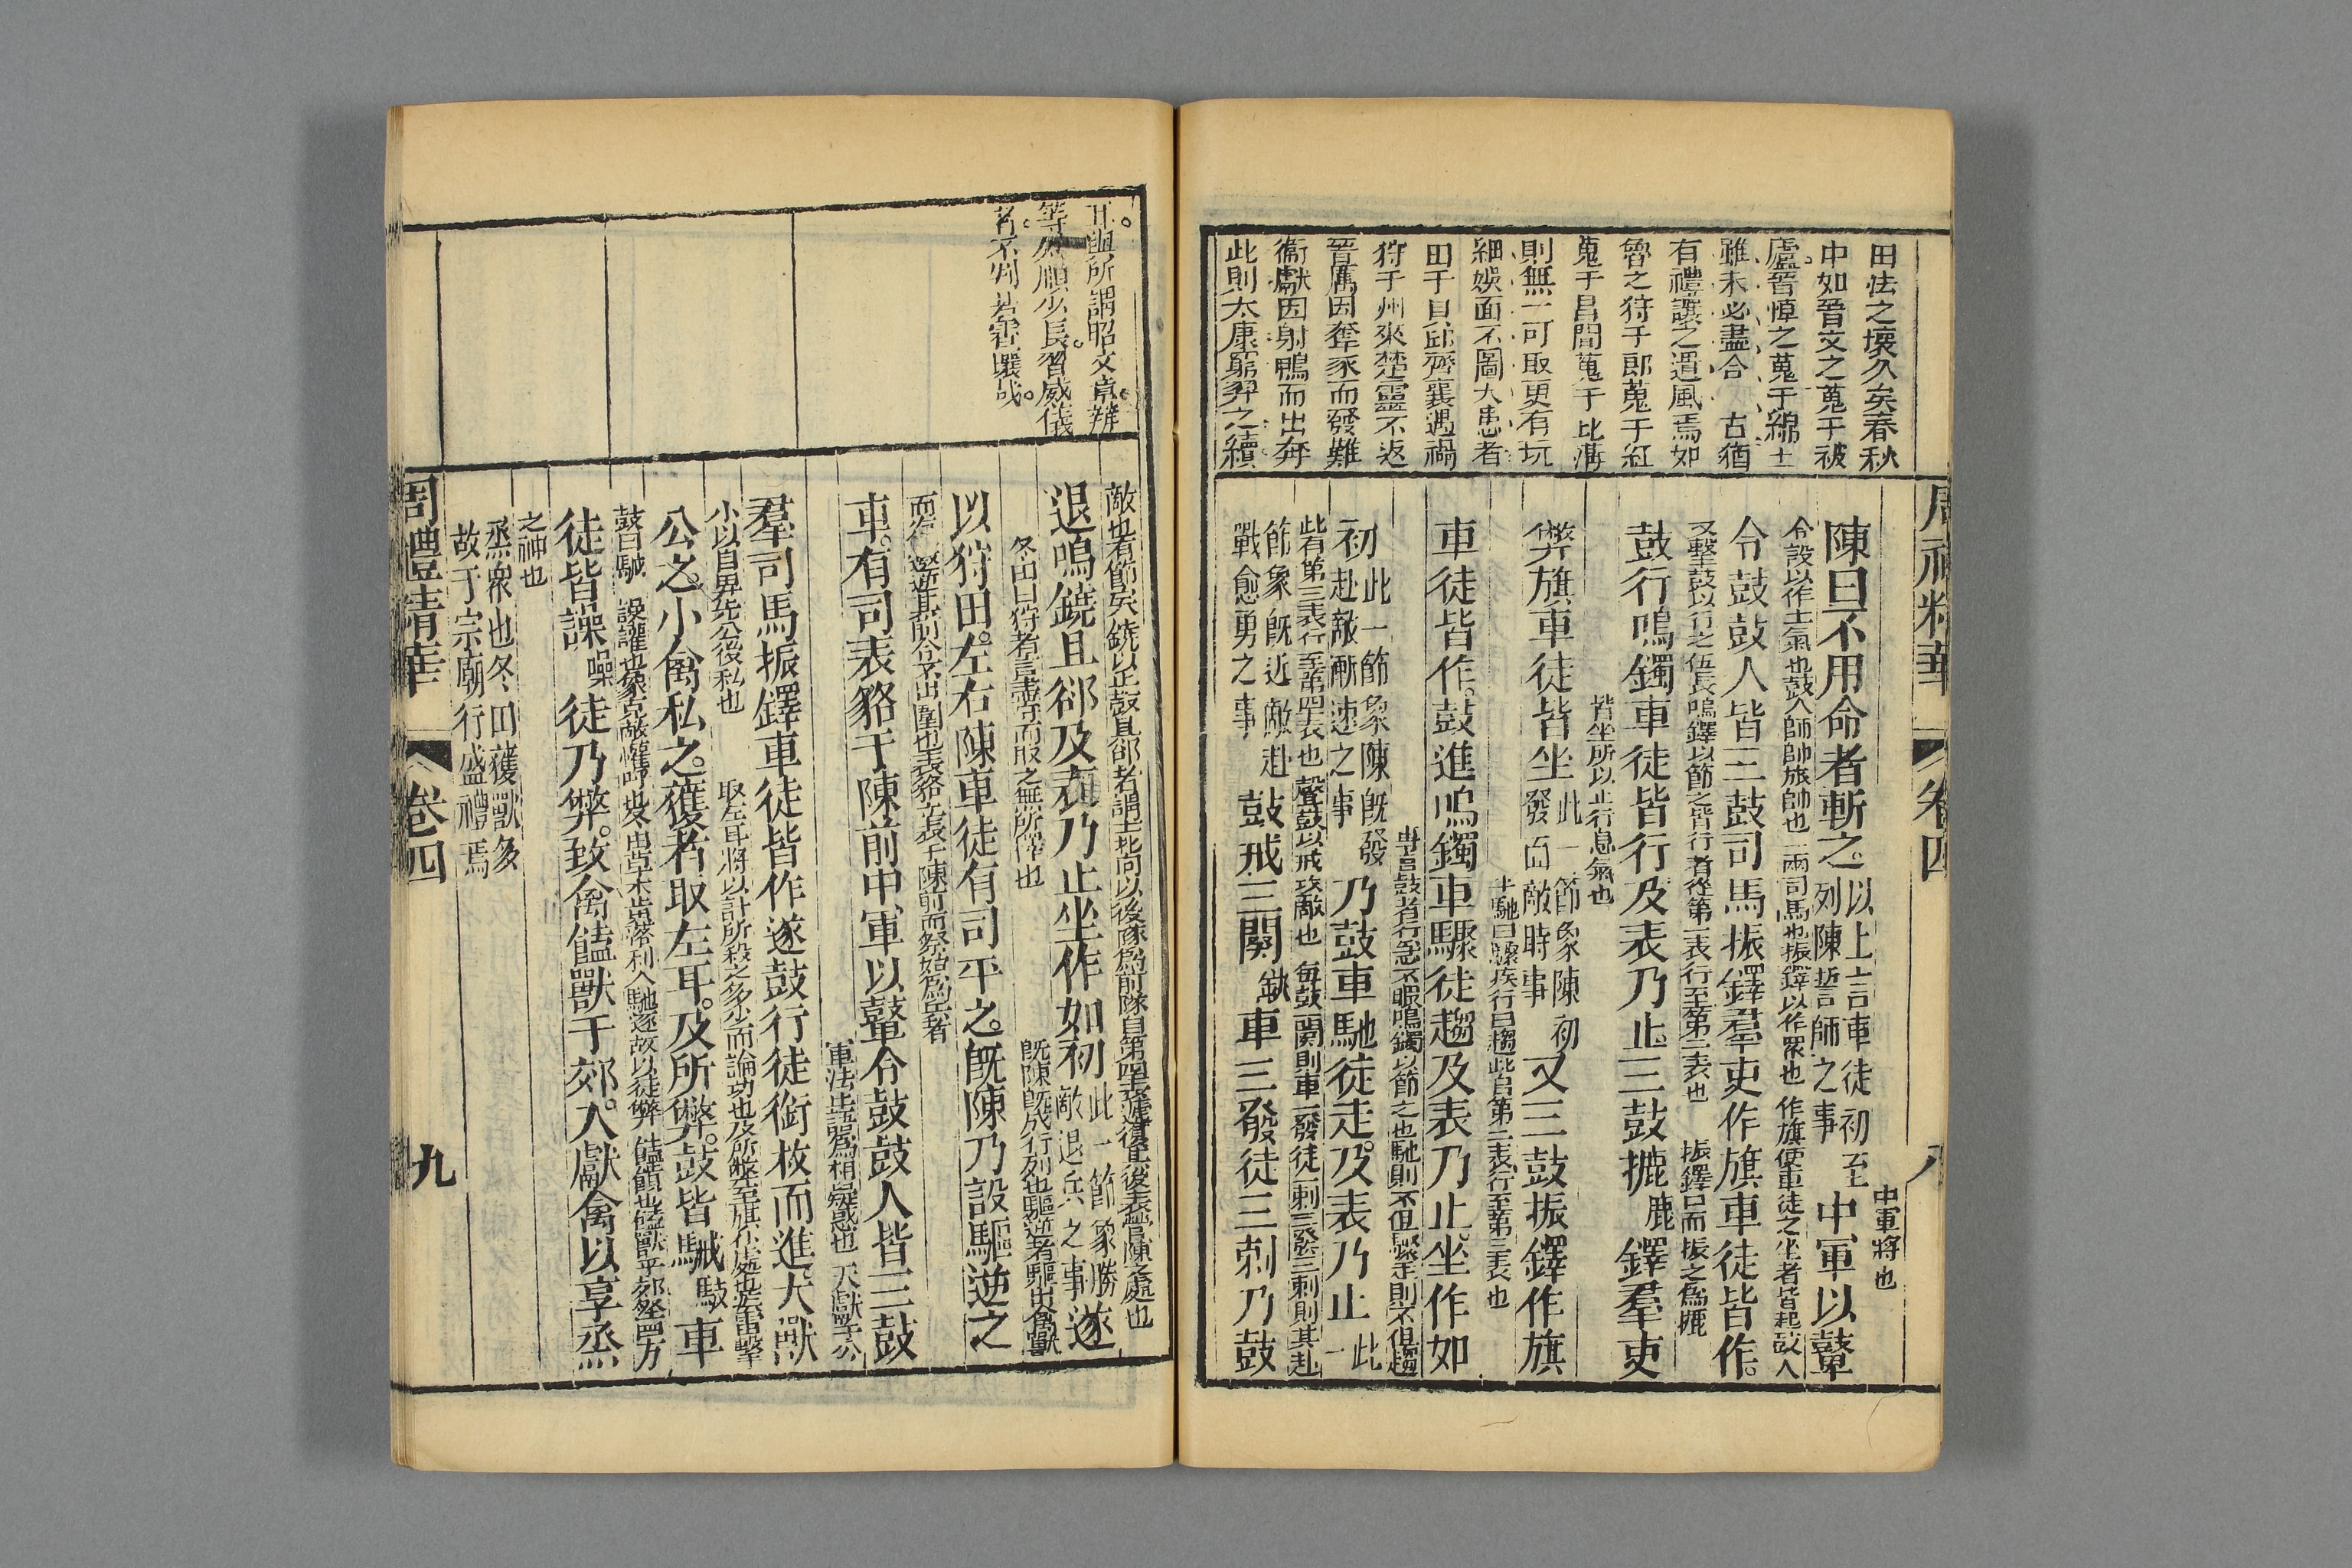 周禮精華
卷四
八
田法之壞久矣春秋
中如晉文之蒐于被
廬晉悼之蒐于綿土
雖未必盡合古猶
有禮讓之遺風焉如
魯之狩于郎蒐于紅
蒐于昌間蒐于比蒲
則無一可取更有玩
細娛而不圖大患者
田于貝邱齊襄遇禍
狩于州來楚靈不返
晉厲因奪豕而發難
衞獻因射鴨而出奔
此則太康窮羿之續
中軍將也
陳曰不用命者斬之以上言車徒初至列陳誓師之事中軍以鼙
令設以作士氣也鼓人師帥旅帥也兩司馬也振鐸以作衆也作旗使車徒之坐者皆起鼓人
令鼓鼓人皆三鼓司馬振鐸羣吏作旗車徒皆作
又擊鼓以行之伍長鳴鐲以節之皆行者從第一表行至第二表也振鐸口而振之爲摝
鼓行鳴鐲車徒皆行及表乃止三鼓摝鹿鐸羣吏
皆坐所以止行息氣也
弊旗車徒皆坐此一節象陳初發面敵時事又三鼓振鐸作旗
車馳曰驟疾行曰趨此自第二表行至第三表也
車徒皆作鼓進鳴鐲車驟徒趨及表乃止坐作如
專言鼓者行急不暇鳴鐲以節之也馳則不但驟走則不但趨
初此一節象陳旣發初赴敵漸速之事乃鼓車馳徒走及表乃止此一
此者第三表行至第四表也聲鼓以戒攻敵也每鼓一闋則車一發徒一刺三發三刺則其赴
節象旣近敵赴戰愈勇之事鼓戒三闋缺車三發徒三刺乃鼓
耳與所謂昭文章辨
等列順少長習威儀
者不判若霄壤哉
敵也有節矣鐃以止鼓且郤者謂士北向以後隊爲前隊自第四表遞復其後表當陳之處也
退鳴鐃且郤及表乃止坐作如初此一節象勝敵退兵之事遂
冬田曰狩者言盡守而取之無所擇也旣陳旣成行列也驅逆者驅出禽獸
以狩田左右陳車徒有司平之旣陳乃設驅逆之
而逆其前令不出圍也表貉立表于陳前而祭始爲兵者
車有司表貉于陳前中軍以鼙令鼓鼓人皆三鼓
軍法止譁爲相疑惑也大獻于公
羣司馬振鐸車徒皆作遂鼓行徒銜枚而進大獸
小以自畀先公後私也取左耳將以計所殺之多少而論功也及所弊至旗仆處也疾雷擊
公之小禽私之獲者取左耳及所弊鼓皆駴駭車
鼓曰駴譟讙也象克敵懽呼也冬田草木皆落利人馳逐故以徒弊饁饋也饁獸于郊祭四方
徒皆譟噪徒乃弊致禽饁獸于郊入獻禽以享烝
之神也
烝衆也冬田獲獸多
故于宗廟行盛禮焉
周禮精華
卷四
九